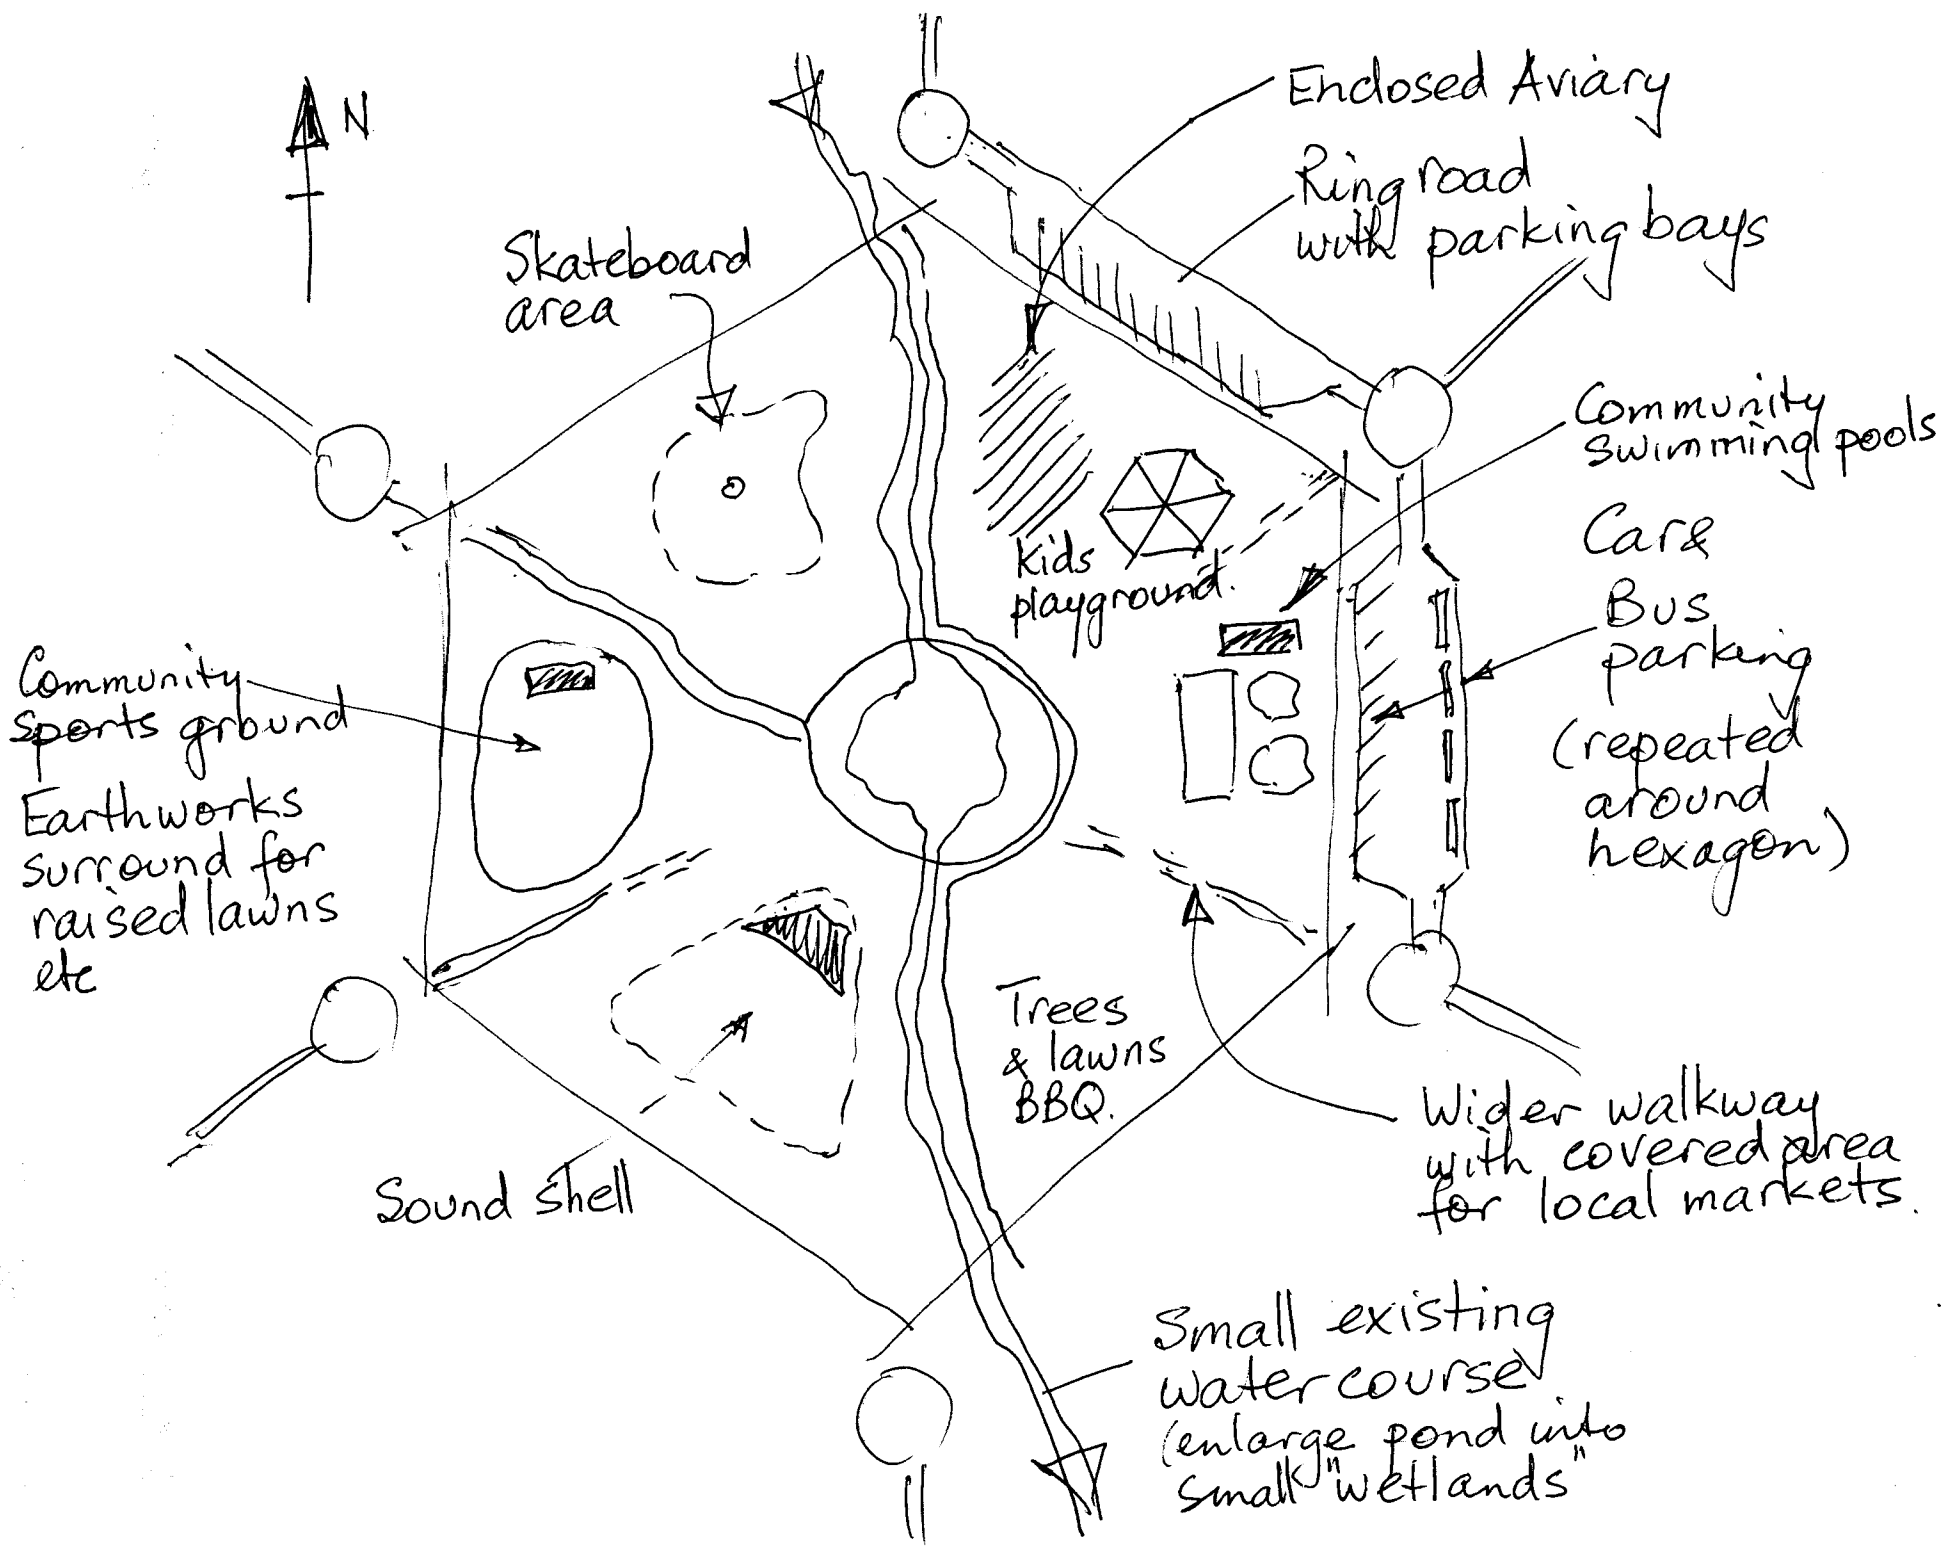 N
Enclosed Aviary
Ring road
with parking bays
Skateboard
area
Community
swimming pools
Car &
Bus
parking
(repeated
around
hexagon)
Kids
playground.
Community
sports ground
Earthworks
surround for
raised lawns
etc
Trees
& lawns
BBQ.
Wider walkway
with covered area
for local markets.
Sound shell
Small existing
water course
(enlarge pond into
small "wetlands"